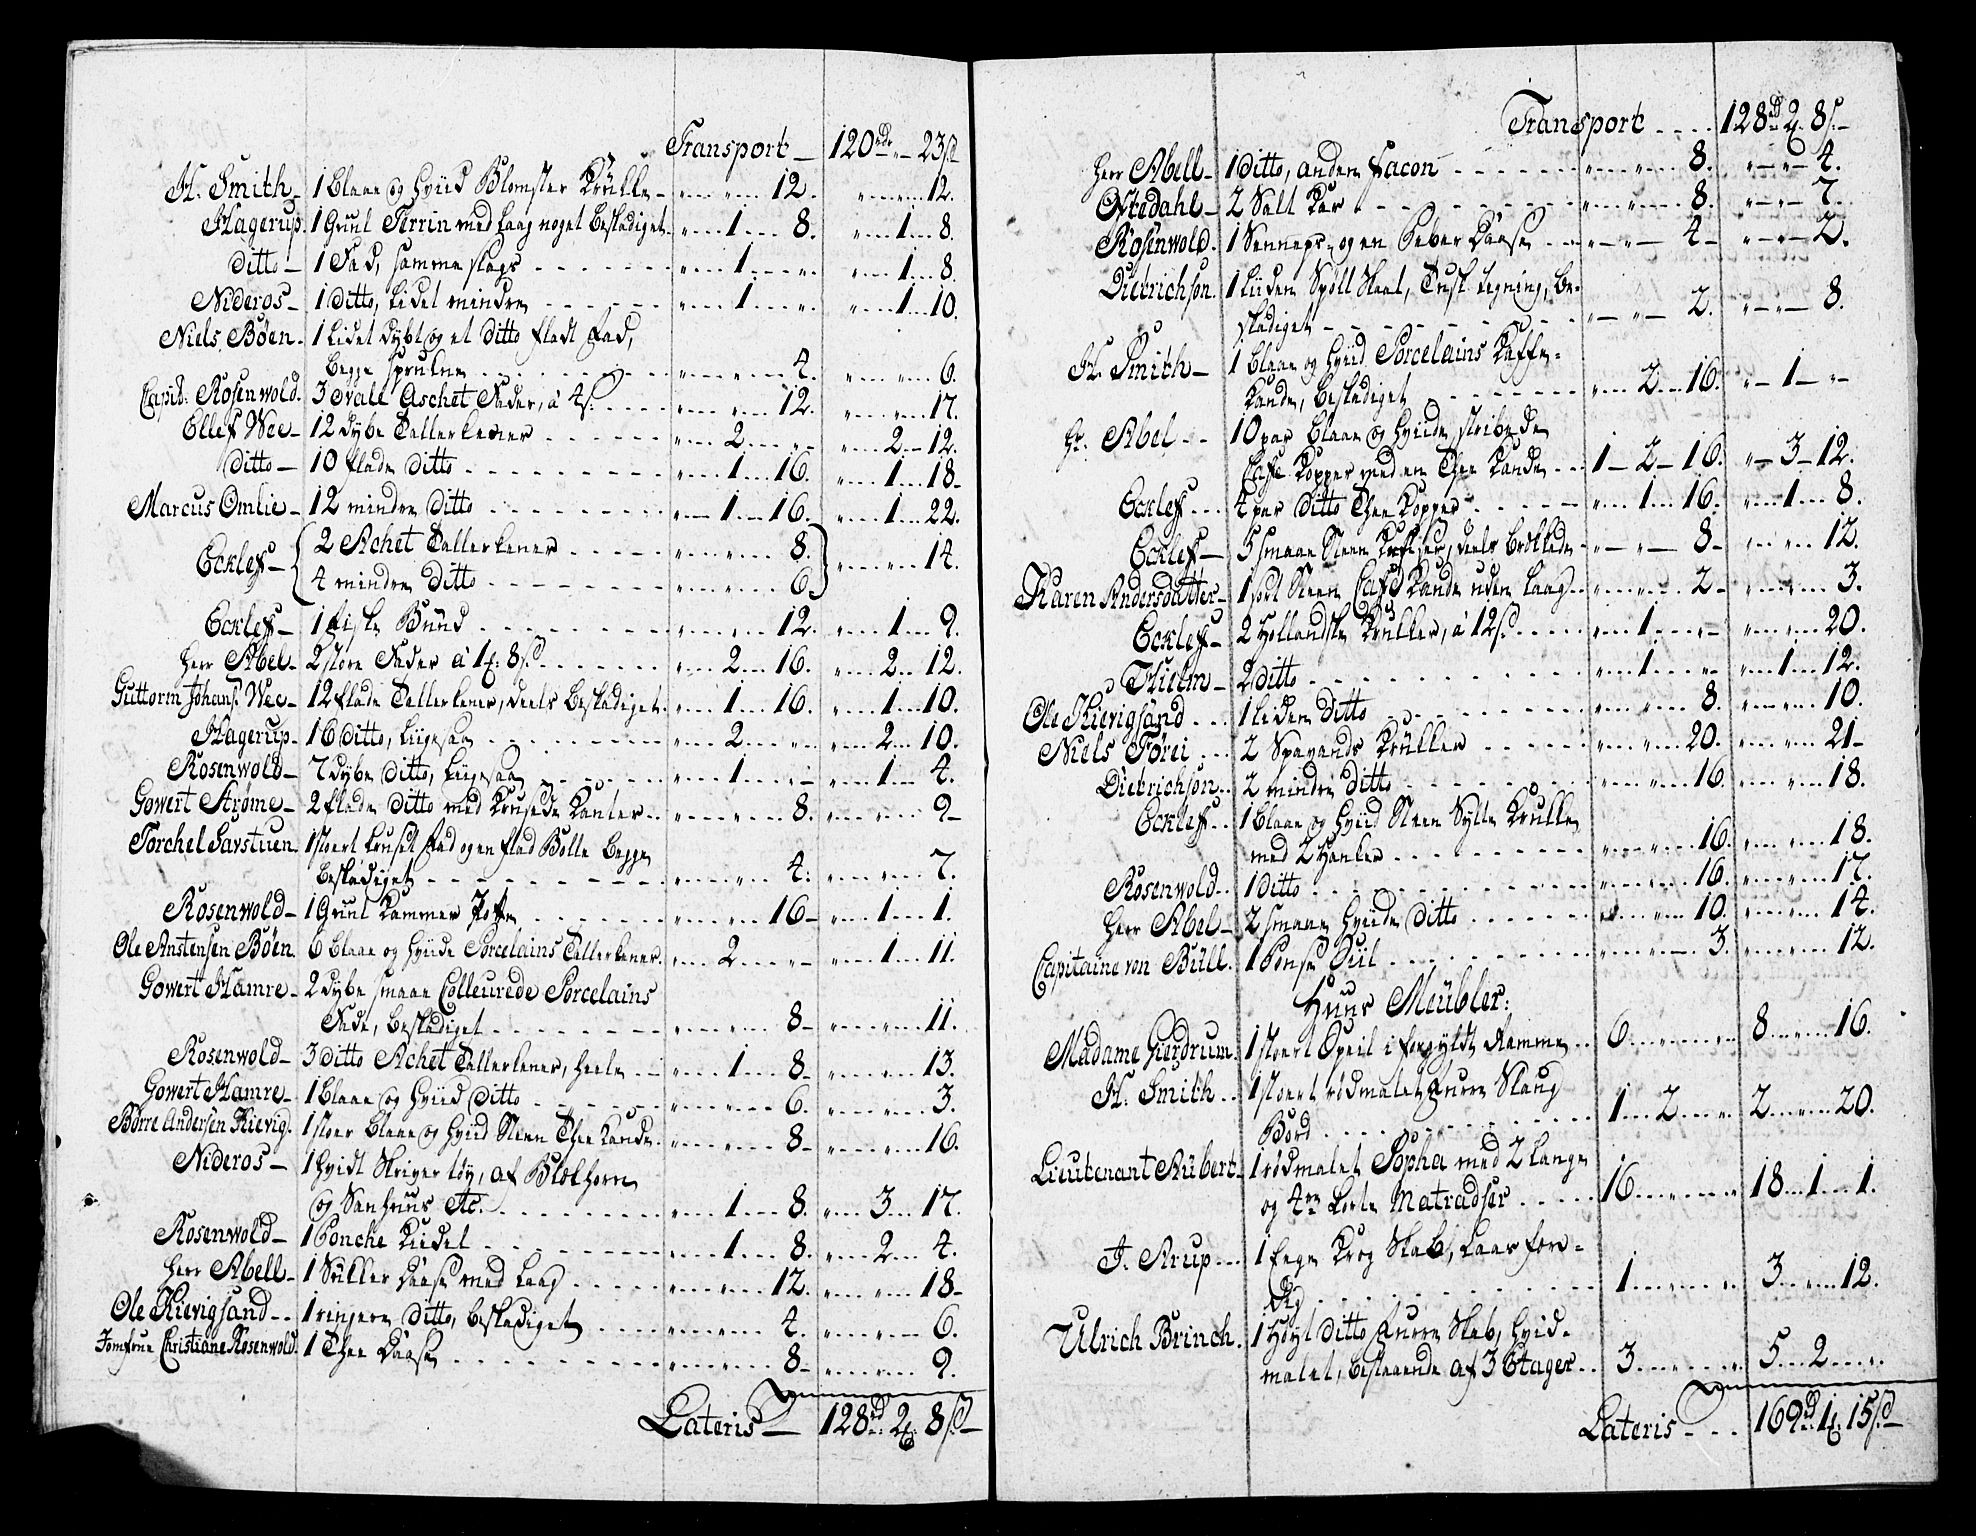 Transport — 120rdr „ 23 s
H. Smith — 1 blaae og hviid Blomster Krukke „ „ 12. „ „ 12.
Hagerup. 1 Guul Terrin med laag noget beskadiget „ 1 8. „ 1 8.
ditto — 1 Fad, samme slags „ 1 „ „ 1 8.
Nideros — 1 ditto, lidet mindre „ 1 „ „ 1 10.
Niels Böen. 1 lidet dybt og et ditto fladt Fad,
begge sprukne „ „ 4. „ „ 6.
Capit: Rosenwold. 3 ovale Aschet Fader, à 4 s: „ „ 12. „ „ 17.
Ellef Wee — 12 dybe Tallerkener „ 2 „ „ 2 12.
ditto — 10 flade ditto „ 1 16. „ 1 18.
Marcus Omlie — 12 mindre ditto „ 1 16. „ 1 22.
Eckleff — 2 Achet Tallerkener „ „ 8. „ „ 14.
4 mindre ditto „ „ 6.
Eckleff — 1 Fiske Bund „ „ 12. „ 1 9.
Herr Abel — 2 store Fader à 1 8 s „ 2 16. „ 2 12.
Guttorm Johans. Wee — 12 flade Tallerkener, deels beskadiget „ 1 16. „ 1 10.
Hagerup — 16 ditto, ligesaa „ 2 „ „ 2 10.
Rosenwold — 7 dybe ditto, ligesaa „ 1 „ „ 1 4.
Gowert Strøme — 2 flade ditto med krusede Kanter „ „ 8. „ „ 9
Torchel Savstuen 1 stoert kruset Fad og en flad Bolle begge
beskadiget „ „ 4: „ „ 7.
Rosenwold — 1 Guul Kammer Potte „ „ 16 „ 1 1.
Ole Anstensen Böen. 6 blaae og hviide Porcelains Tallerkener „ 2 „ „ 1 11.
Gowert Hamre — 2 dybe smaae Colleurede Porcelains
Fade, beskadiget „ „ 8 „ „ 11.
Rosenwold — 3 ditto Achet Tallerkener, heele „ 1 8 „ „ 13.
Gowert Hamre — 1 blaae og hviid ditto „ „ 6. „ „ 3.
Börre Andersen Kievig. 1 stoer blaae og hviid Steen Thee Kande „ „ 8 „ „ 16.
Nideros — 1 hvidt Skrivertöy, af Blækhorn
og Sandhuus etc. „ 1 8. „ 3 17.
Rosenwold — 1 Ponche Kiedel „ 1 8. „ 2 4.
Herr Abell — 1 Sukker Daase med laag „ „ 12. „ „ 18
Ole Kievigsand 1 ringere ditto, beskadiget „ „ 4. „ „ 6.
Jomfrue Christiane Rosenwold. 1 Thee Daase „ „ 8 „ „ 9.
Lateris — 128rd 2 8 s
Transport 128rd 2 8 s
Herr Abell — 1 ditto, anden Facon „ „ 8. „ „ 4.
Stedahl — 2 Salt Kar „ „ 8. „ „ 7.
Rosenwold. 1 Senneps og en Peber Daase „ „ 4 „ „ 2.
Dietrichson. 1 liden Spöll Skaal, Tusk tegning, be-
skadiget „ „ 2. „ „ 8.
H. Smith — 1 blaae og hviid Porcelains Kaffe-
kande, beskadiget „ 2 16. „ 1 „
Hr. Abel 10 par blaae og hviide stribede
Caffe Kopper med en Thee Kande 1 2 16. „ 3 12.
Eckleff 4 par ditto Thee Kopper „ 1 16. „ 1 8.
Eckleff — 5 smaae Steen deels brekkede „ „ 8 „ „ 12.
Karen Andersdatter — 1 sort Steen Caffe Kande uden laag „ „ 2 „ „ 3.
Eckleff — 2 Hollandske Krukker, à 12 s. „ 1 „ „ „ 20.
Thielm — 2 ditto „ 1 „ „ 1 12.
Ole Kievigsand 1 liden ditto „ „ 8 „ „ 10.
Niels Torei 2 Spavands Krukker „ „ 20. „ „ 21
Dietrichson 2 mindre ditto „ „ 16 „ „ 18.
Eckleff 1 blaae og hviid Steen Sylte Krukke
med 2 Hanker „ „ 16. „ „ 18.
Rosenwold 1 ditto „ „ 16. „ „ 17.
Herr Abel — 2 smaae hviide ditto „ „ 10. „ „ 14.
Capitaine von Büll. 1 Ponse Öiil „ „ 3. „ „ 12.
Huus Meübler:
Madame Gierdrum. 1 stoert Speil i forgyldt Ramme 6 „ „ 8 „ 16.
H. Smith 1 stoert rödmalet Furre Slaug
Bord 1 2 „ 2 „ 20.
Lieutenant Aubert 1 rödmalet Sopha med 2 lange
og 4re korte Matradser 16 „ „ 18 1 1.
J. Arup 1 Eege Krog Skab, laas for-
dig 1 „ „ 3 „ 12.
Ulrich Brinch. 1 Höyt ditto Furre Skab, hvid-
malet, bestaaende af 3 Etager 3 „ „ 5 2 „
Lateris 169rd 1 15 s